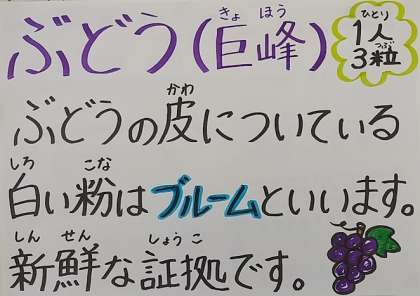 ぶどう(巨峰)
きょ ほう
1人
ひとり
3粒
つぶ
ぶどうの皮についている
かわ
白い粉はブルームといいます。
しろ こな
新鮮な証拠です。
しん せん しょう こ